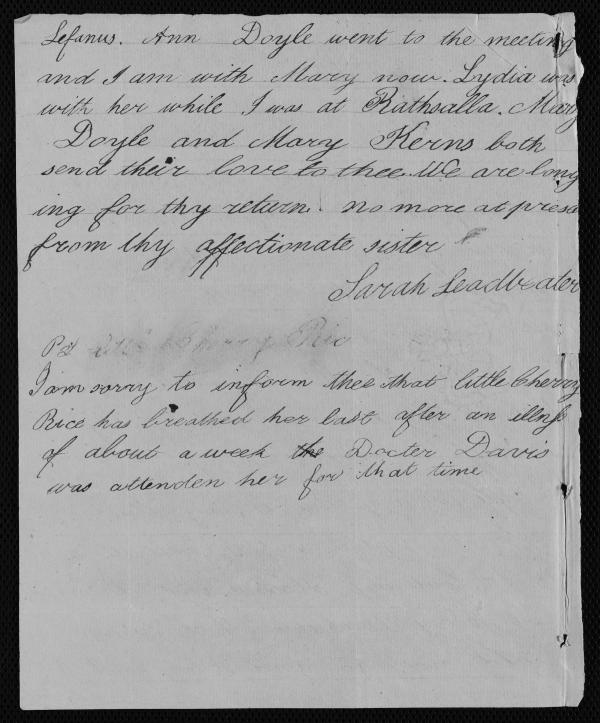 Lefanus. Ann Doyle went to the meeting
and I am with Mary now. Lydia was
with her while I was at Rathsalla. Mary
Doyle and Mary Kerns both
send their love to thee. We are long
ing for thy return. no more at present
from thy affectionate sister
Sarah Leadbeater
Ps Cherry Rice
I am sorry to inform thee that little Cherry
Rice has breathed her last after an illness
of about a week the Docter Davis
was attenden her for that time